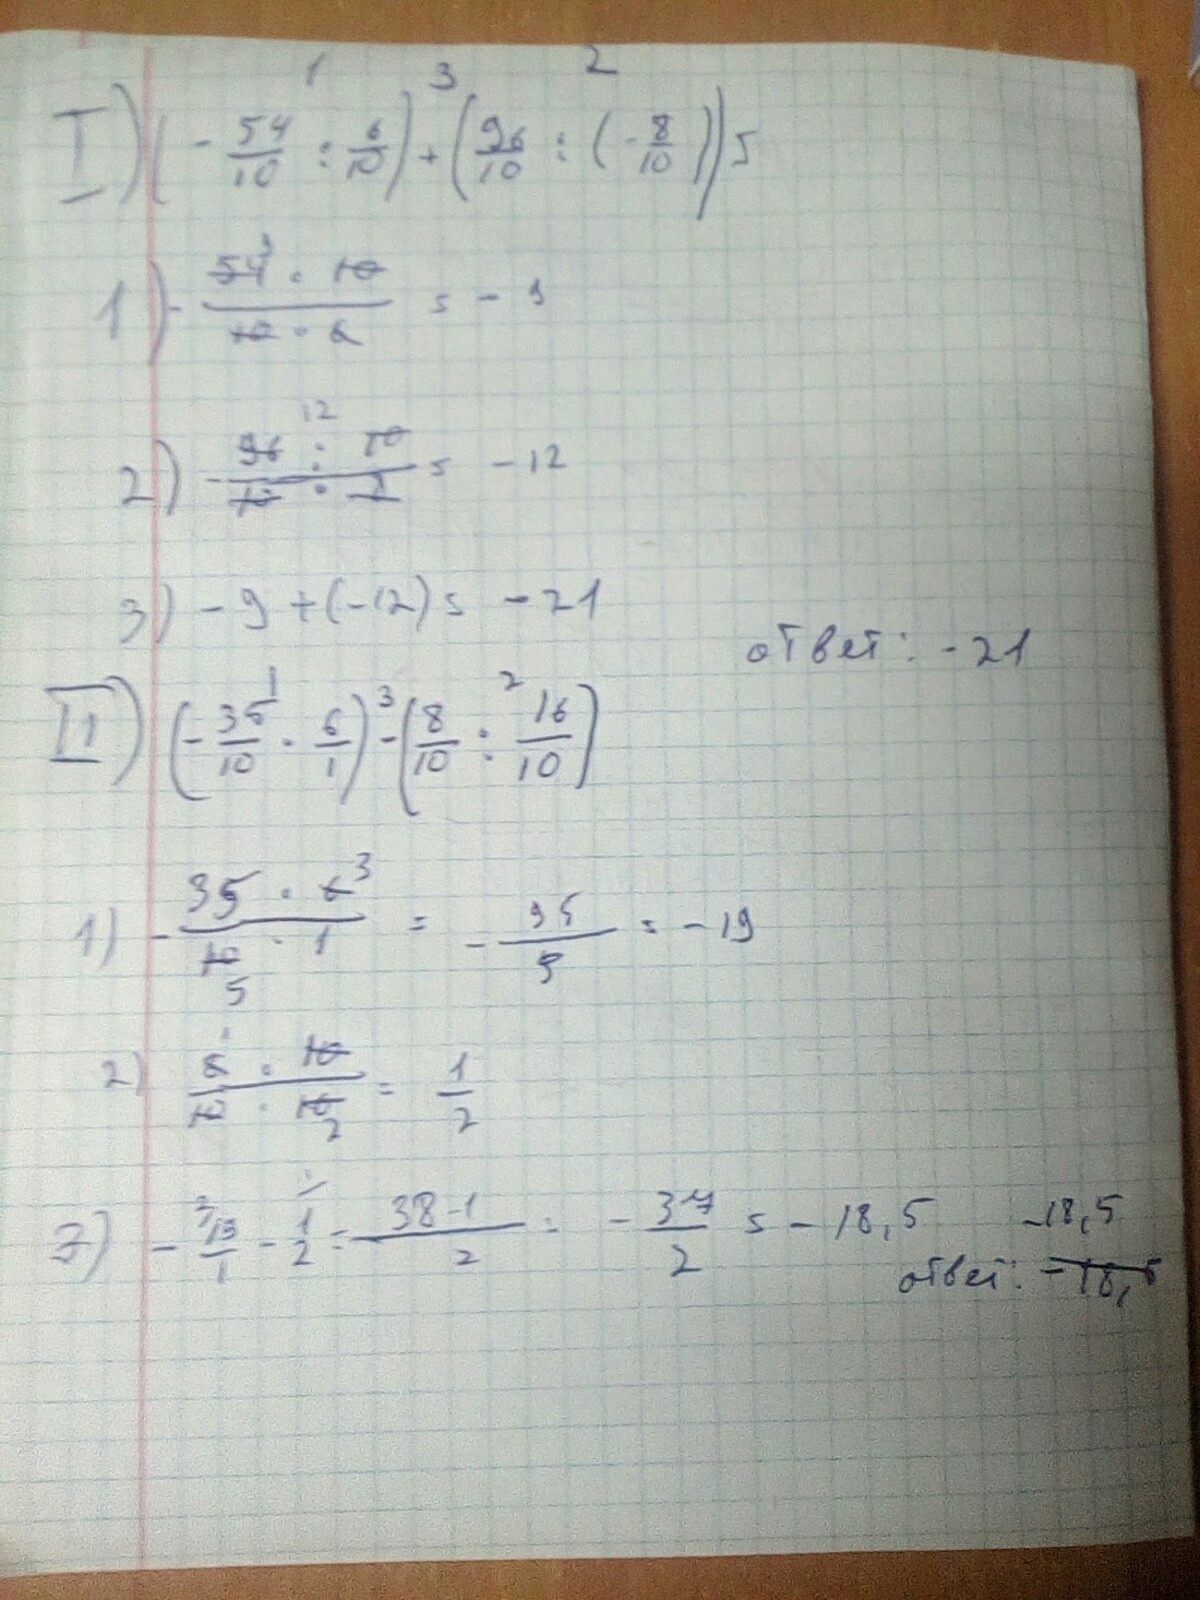 1 3 2
I) (- 54/10 : 6/10) + (96/10 : (- 8/10)) =
1) - 54 9 · 10 / 10 · 6 = - 9
2) - 96 12 : 10 / 10 · 8 = - 12
3) - 9 + (-12) = - 21
ответ: - 21
1 3 2
II) (- 35/10 · 6/1) - (8/10 : 16/10)
1) - 35 · 6 3 / 10 5 · 1 = - 95/5 = - 19
2) 8 · 10 / 10 · 16 2 = 1/2
3) - 19/1 - 1/2 = 38-1/2 = - 37/2 = - 18,5
-18,5
ответ: - 18,5